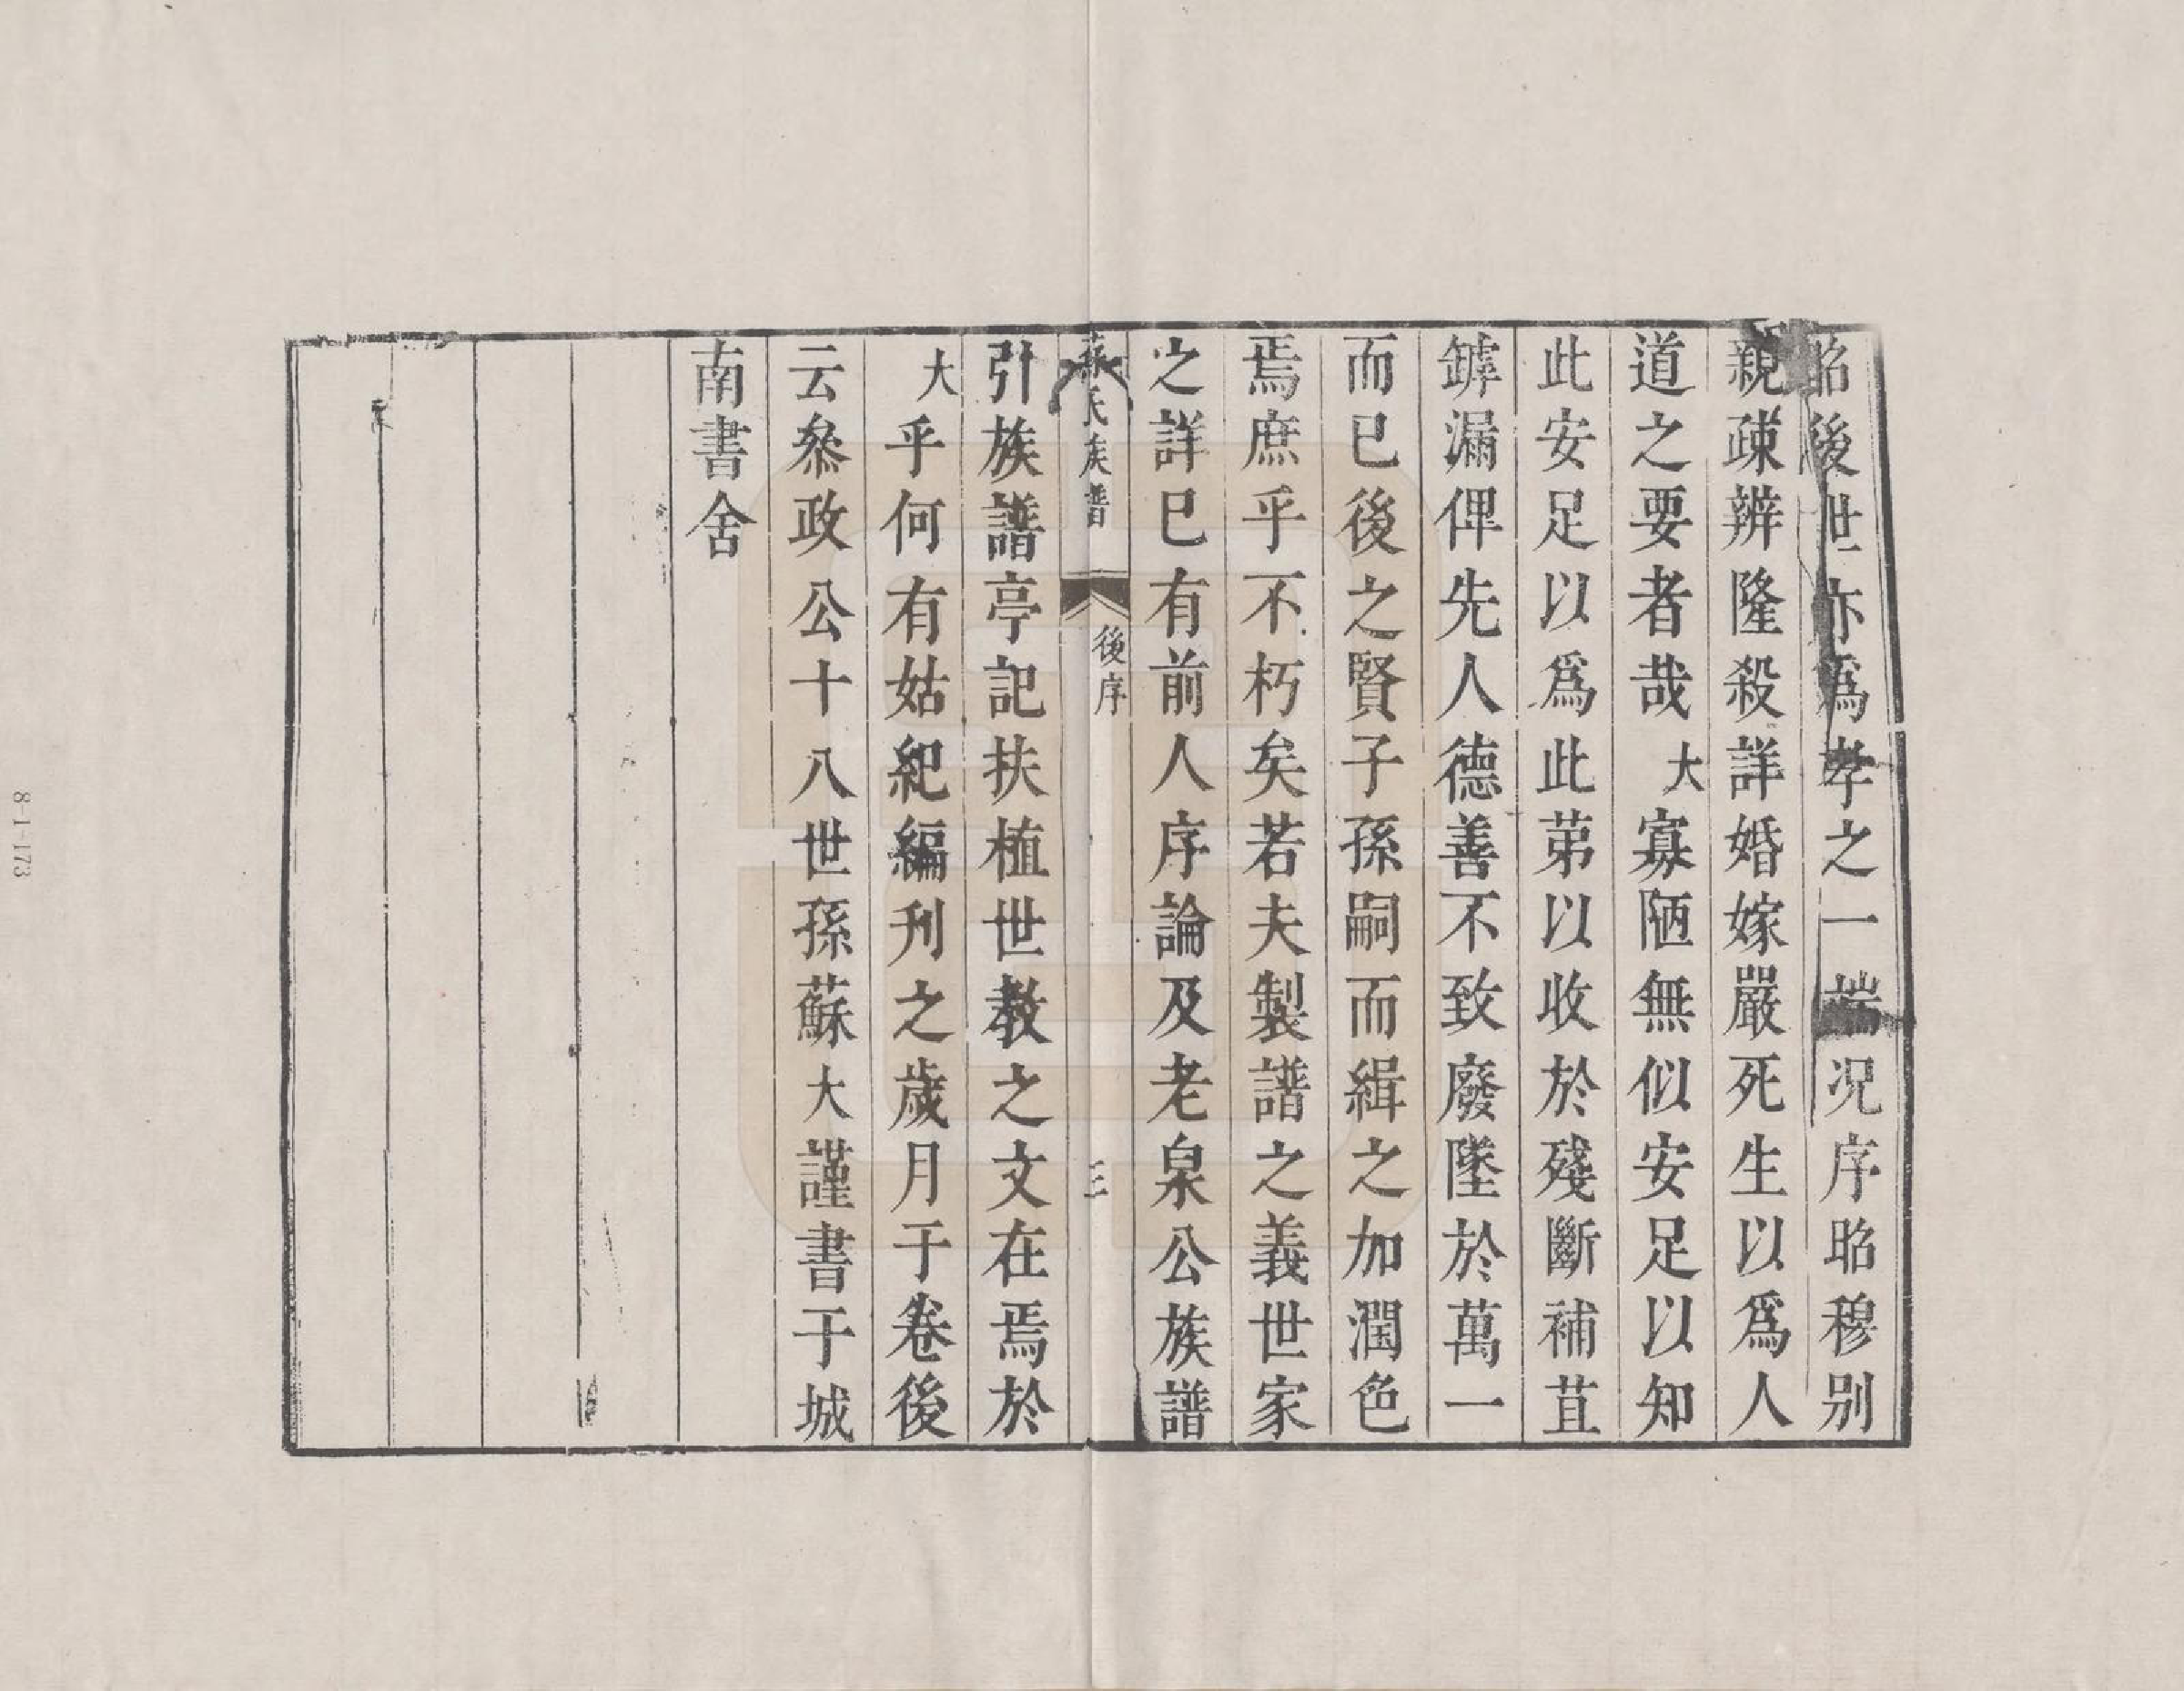 昭後世亦爲孝之一端况序昭穆别
親疎辨隆殺詳婚嫁嚴死生以爲人
道之要者哉大寡陋無似安足以知
此安足以爲此苐以收於殘斷補苴
罅漏俾先人德善不致廢墜於萬一
而已後之賢子孫嗣而緝之加潤色
焉庶乎不朽矣若夫製譜之義世家
之詳已有前人序論及老泉公族譜
蘇氏族譜 後序 三
引族譜亭記扶植世教之文在焉於
大乎何有姑紀編刊之歲月于卷後
云叅政公十八世孫蘇大謹書于城
南書舍
8-1-173